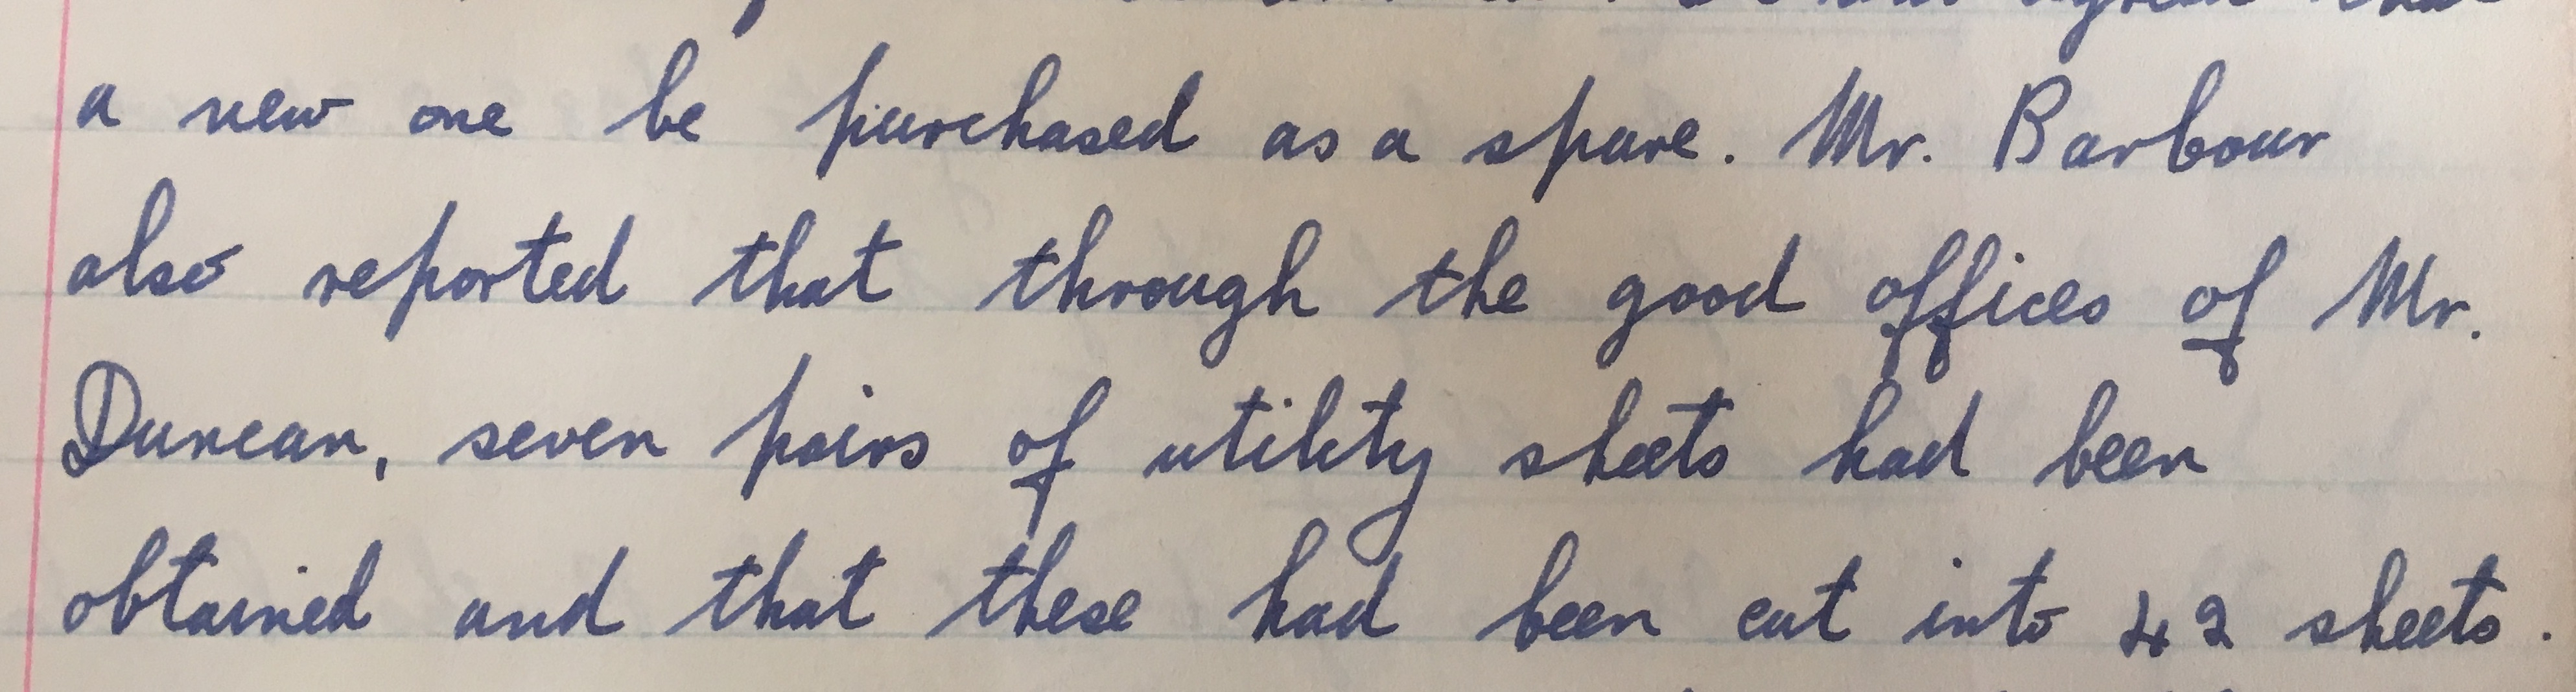 agreed that
a new one be purchased as a spare. Mr. Barbour
also reported that through the good offices of Mr.
Duncan, seven pairs of utility sheets had been
obtained and that these had been cut into 42 sheets.